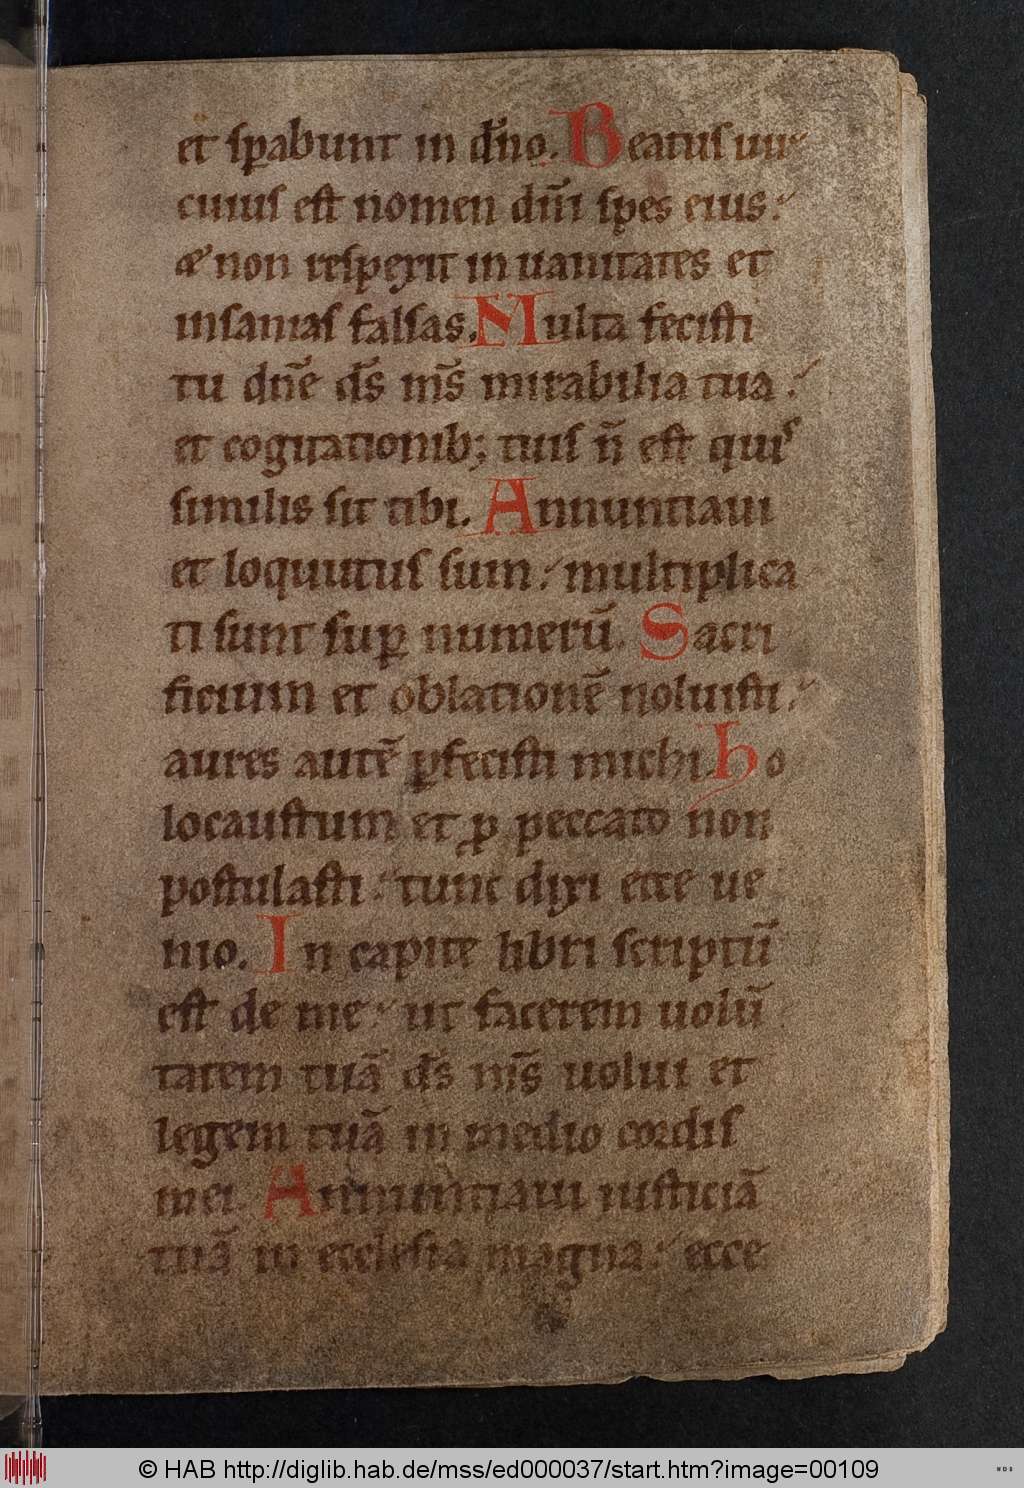 et sp̱abunt in dn̄o. Beatus uir
cuius est nomen dn̄i spes eius:
& non respexit in uanitates et
insanias falsas. Multa fecisti
tu dn̄e ds̄ ms̄ mirabilia tua:
et cogitationib; tuis n̄ est quis
similis sit tibi. Annuntiaui
et loquutus sum: multiplica
ti sunt sup̱ numerū. Sacri
ficium et oblationē noluisti:
aures autē p̱fecisti michi. Ho
locaustum et ꝓ peccato non
postulasti: tunc dixi ecce ue
nio. In capite libri scriptū
est de me: ut facerem uolū
tatem tuā ds̄ ms̄ uolui et
legem tuā in medio cordis
mei. Annuntiaui iusticiā
tuā in ecclesia magna: ecce
© HAB http://diglib.hab.de/mss/ed000037/start.htm?image=00109